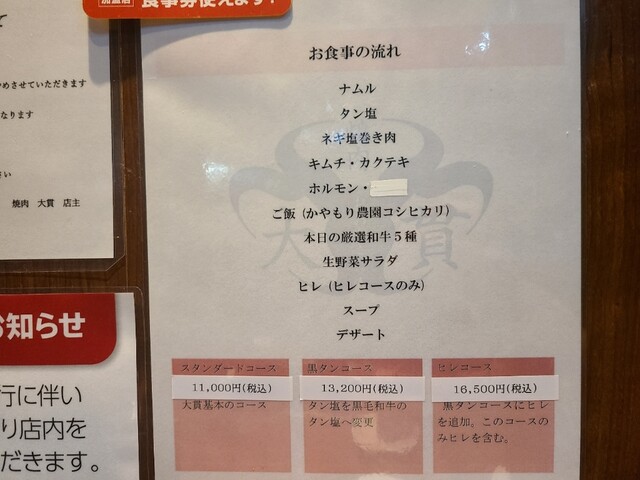 加盟店
食事券使えます！
やめさせていただきます
なります
さい
焼肉 大貫 店主
お知らせ
行に伴い
り店内を
だきます。
お食事の流れ
ナムル
タン塩
ネギ塩巻き肉
キムチ・カクテキ
ホルモン・
ご飯 (かやもり農園コシヒカリ)
本日の厳選和牛５種
生野菜サラダ
ヒレ (ヒレコースのみ)
スープ
デザート
大貫
スタンダードコース
11,000円(税込)
大貫基本のコース
黒タンコース
13,200円(税込)
タン塩を黒毛和牛の
タン塩へ変更
ヒレコース
16,500円(税込)
黒タンコースにヒレ
を追加。このコースの
みヒレを含む。